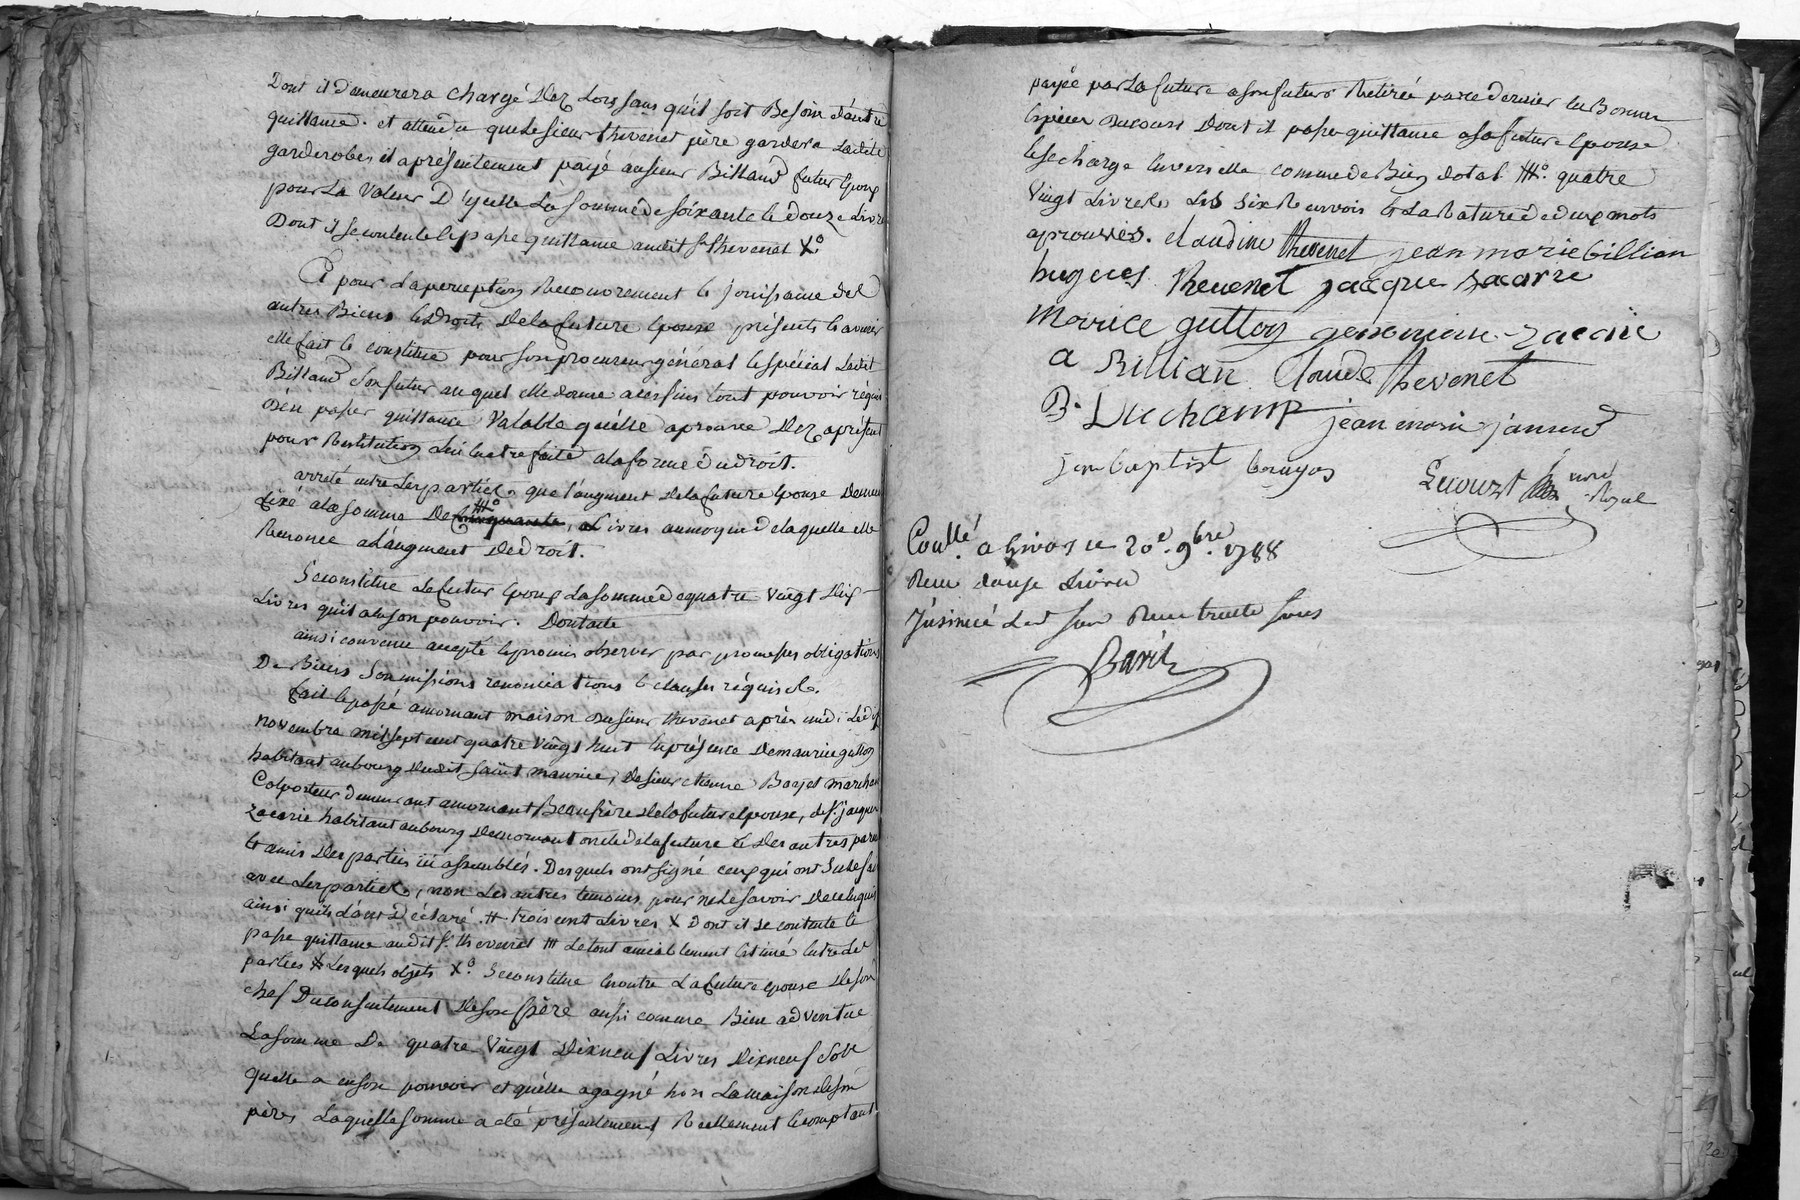 Dont il demeurera chargé dez Lors sans quil soit Besoin d'autre
quittance. et attendu que Le sieur thevenet père gardera Ladite
garderobe, il a présentement payé au sieur Billand futur Epoux
pour La valeur D'ycelle La somme de soixante et douze Livres
Dont il se contente et passe quittance audit Sr thevenet X°
Et pour La perception Recouvrement et jouissance des
autres Biens et Droits de la future Epouse présents et avenir
elle fait et constitue pour son procureur général et spécial Ledit
Billand son futur auquel elle donne a ces fins tout pouvoir réquis
d'en passer quittance valable quélle aprouve dez aprésent
pour Restitution Lui Etre faite a la forme du droit.
arrété entre Les parties que l'augment de la future Epouse demeure
fixé a la somme De Livres au moyen de laquelle elle
Renonce a L'augment de droit.
Se constitue Le futur Epoux La somme de quatre vingt dix
Livres qu'il a en son pouvoir. Dont acte
ainsi convenu accepté et promis observer par promesses obligations
De Biens soumissions renonciations et clauses réquises.
fait et passé a mornant maison du sieur thevenet après midi Le dix
novembre mil sept cent quatre vingt huit En présence de maurice gutton
habitant au bourg dudit saint maurice, de sieur etienne marchand
Colporteur demeurant a mornant Beaufrère de la future Epouse, de sr. jacque
zacarie habitant au bourg de mornant oncle de la future et des autres parents
et amis des parties ici assemblés. Desquels ont signé ceux qui ont su le faire
avec Les parties, non Les autres temoins pour ne Le savoir de ce enquis
ainsi quils L'ont Déclaré. # trois cent Livres X Dont il se contente et
passe quittance audit sr. thevenet ## Le tout amiablement Estimé Entre Les
parties X Lesquels objets X° Se constitue En outre La future epouse de son
chef Du consentement de son père aussi comme Bien adventue
La somme De quatre vingt Dix neuf Livres dix neuf sols
quelle a en son pouvoir et quélle a gagné hors La maison de son
père, Laquelle somme a été présentement, Réellement et comptant
payée par La future a son futur Retirée par ce dernier En Bonnes
Espèces du cours Dont il passe quittance a sa future Epouse
et se charge Envers elle comme de Bien dotal ##° quatre
vingt Livres Les six Renvois et La Rature de deux mots
aprouvés. claudine thevenet jean marie billian
hugues thevenet jacque zacarie
Morice gutton genevieve zacarie
a Billian Claude thevenet
B. Duchamp jean marie
jean baptist
Lecourt nore
Royal
Conllé a givors ce 20e. 9bre. 1788
Reçu douze Livres
Jnsinué Led jour Reçu trente sous